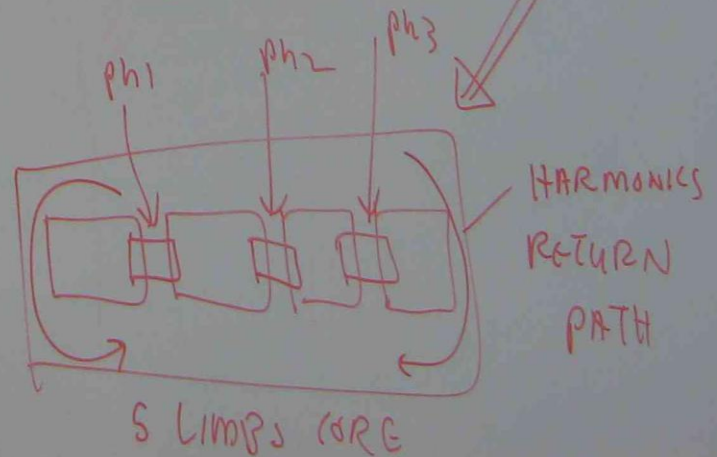 ph1
ph2
ph3
HARMONICS
RETURN
PATH
5 LIMBS CORE